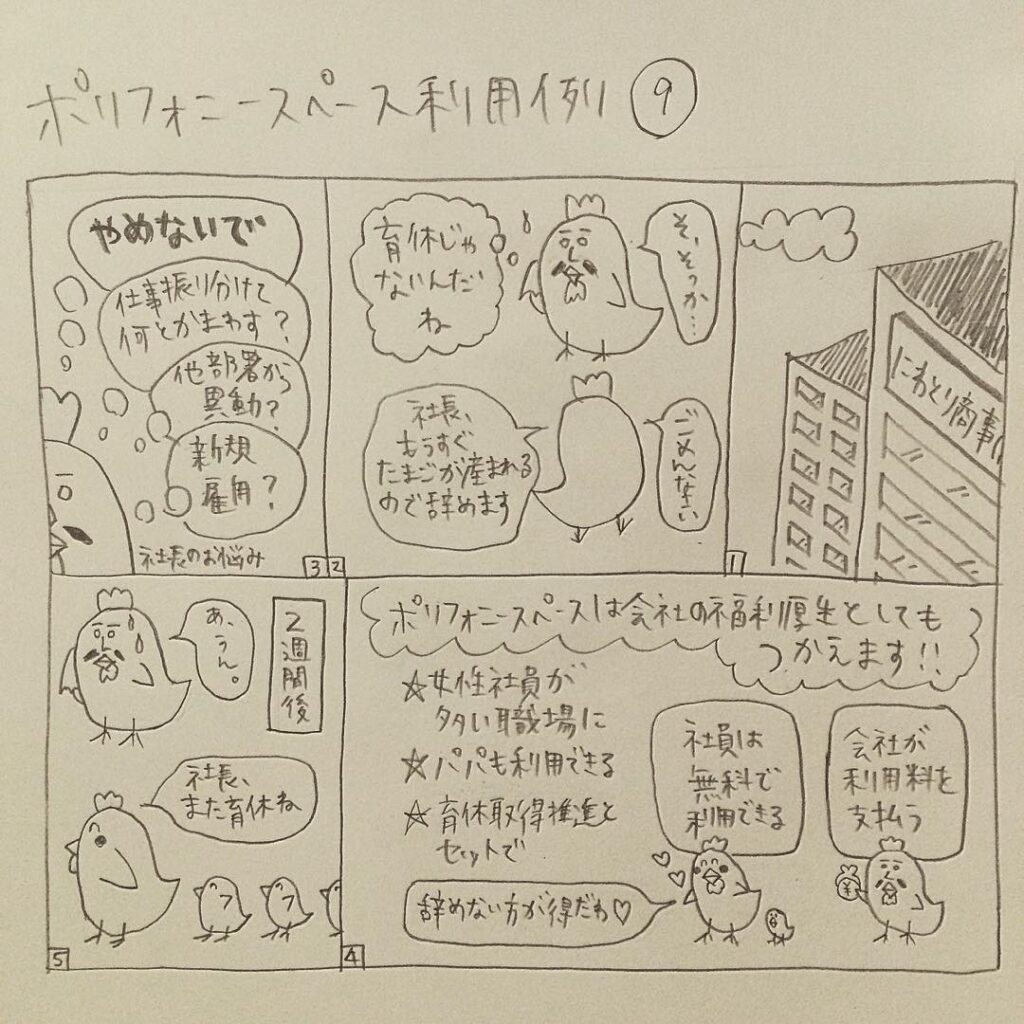 ポリフォニースペース利用例⑨
にわとり商事
1
ごめんなさい
社長、
もうすぐ
たまごが産まれる
ので辞めます
そ、そっか…
育休じゃ
ないんだ
ね
2
やめないで
仕事振り分けて
何とかまわす?
他部署から
異動?
新規
雇用?
社長のお悩み
3
ポリフォニースペースは会社の福利厚生としても
つかえます!!
会社が
利用料を
支払う
¥
社員は
無料で
利用できる
☆女性社員が
多い職場に
☆パパも利用できる
☆育休取得推進と
セットで
辞めない方が得だわ♡
4
2週間後
社長、
また育休ね
あ、うん。
5